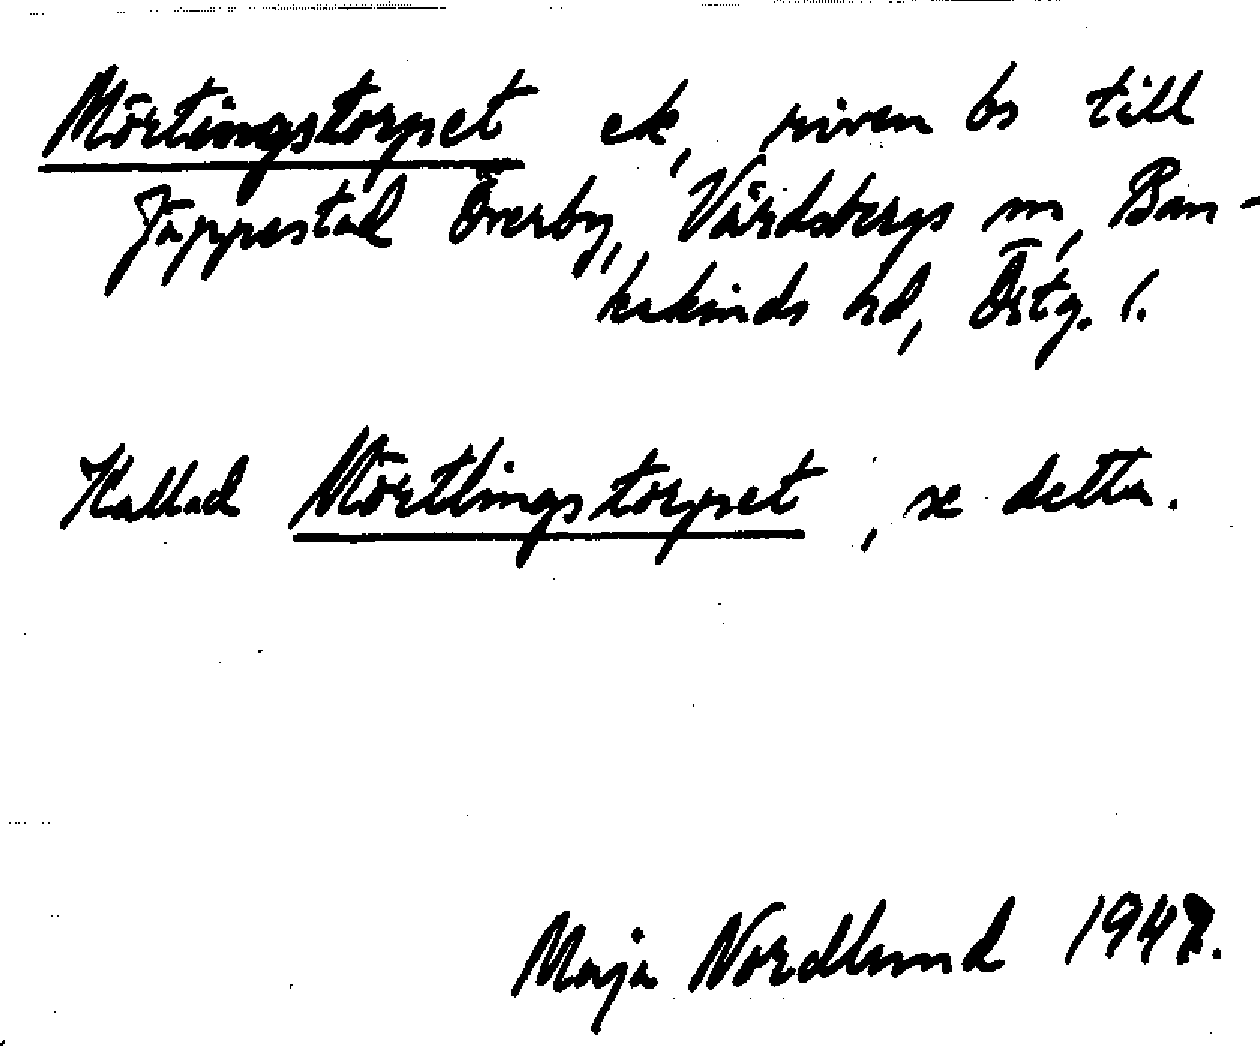 Mörtingstorpet ek, riven bs till
Jäppestad Överby, Vårdsbergs sn, Ban-
kekinds hd, Östg. l.
Kallad Mörtlingstorpet, se detta.
Maja Nordlund 1947.